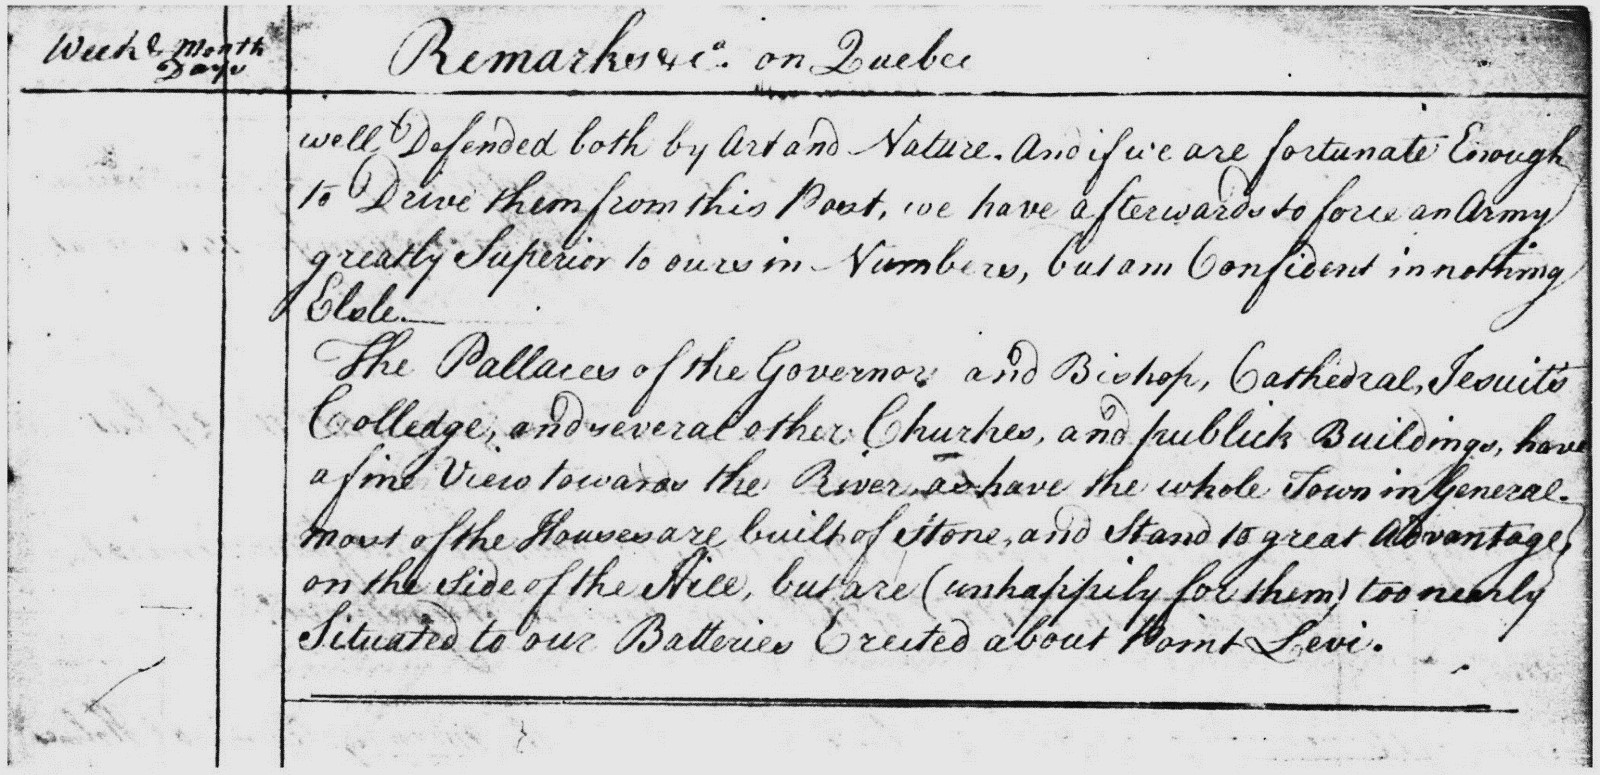 Week & Month
Days
Remarks &ca. on Quebec
well Defended both by Art and Nature. And if we are fortunate Enough
to Drive them from this Post, we have afterwards to force an Army
greatly Superior to ours in Numbers, but am Confident in nothing
Else.—
The Pallaces of the Governor and Bishop, Cathedral, Jesuit's
Colledge, and several other Churhes, and publick Buildings, have
a fine View towards the River, as have the whole Town in General.
most of the Houses are built of Stone, and Stand to great Advantage,
on the Side of the Hill, but are (unhappily for them) too nearly
Situated to our Batteries Erected about Point Levi.